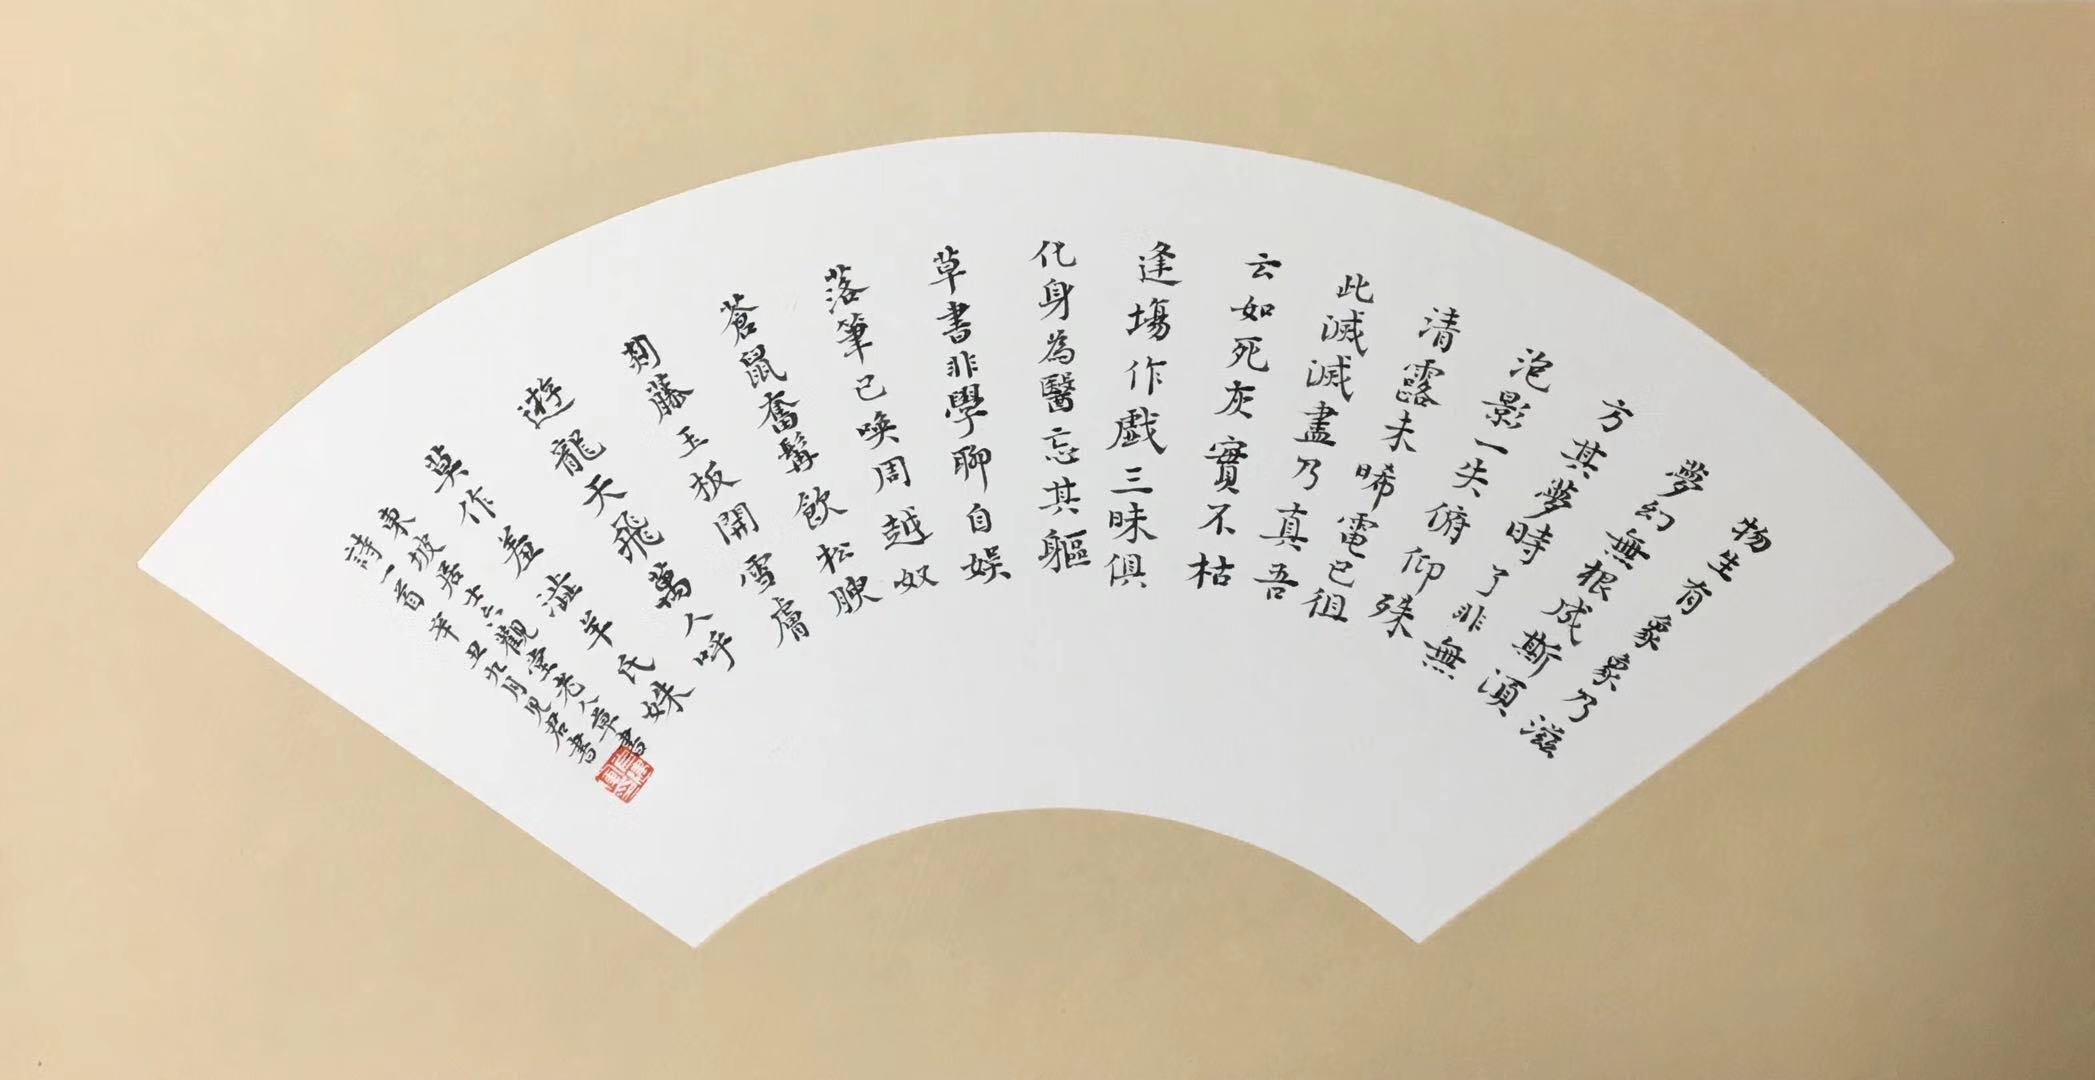 物生有象象乃滋
夢幻無根成斯湏
方其夢時了非無
泡影一失俯仰殊
清露未晞電已徂
此滅滅盡乃真吾
云如死灰實不枯
逢場作戲三昧俱
化身為醫忘其軀
草書非學聊自娛
落筆已喚周越奴
蒼鼠奮髯飲松腴
剡藤玉板開雪膚
遊龍天飛萬人呼
莫作羞澁羊氏姝
東坡居士六觀堂老人草書
詩一首辛丑九月見君書